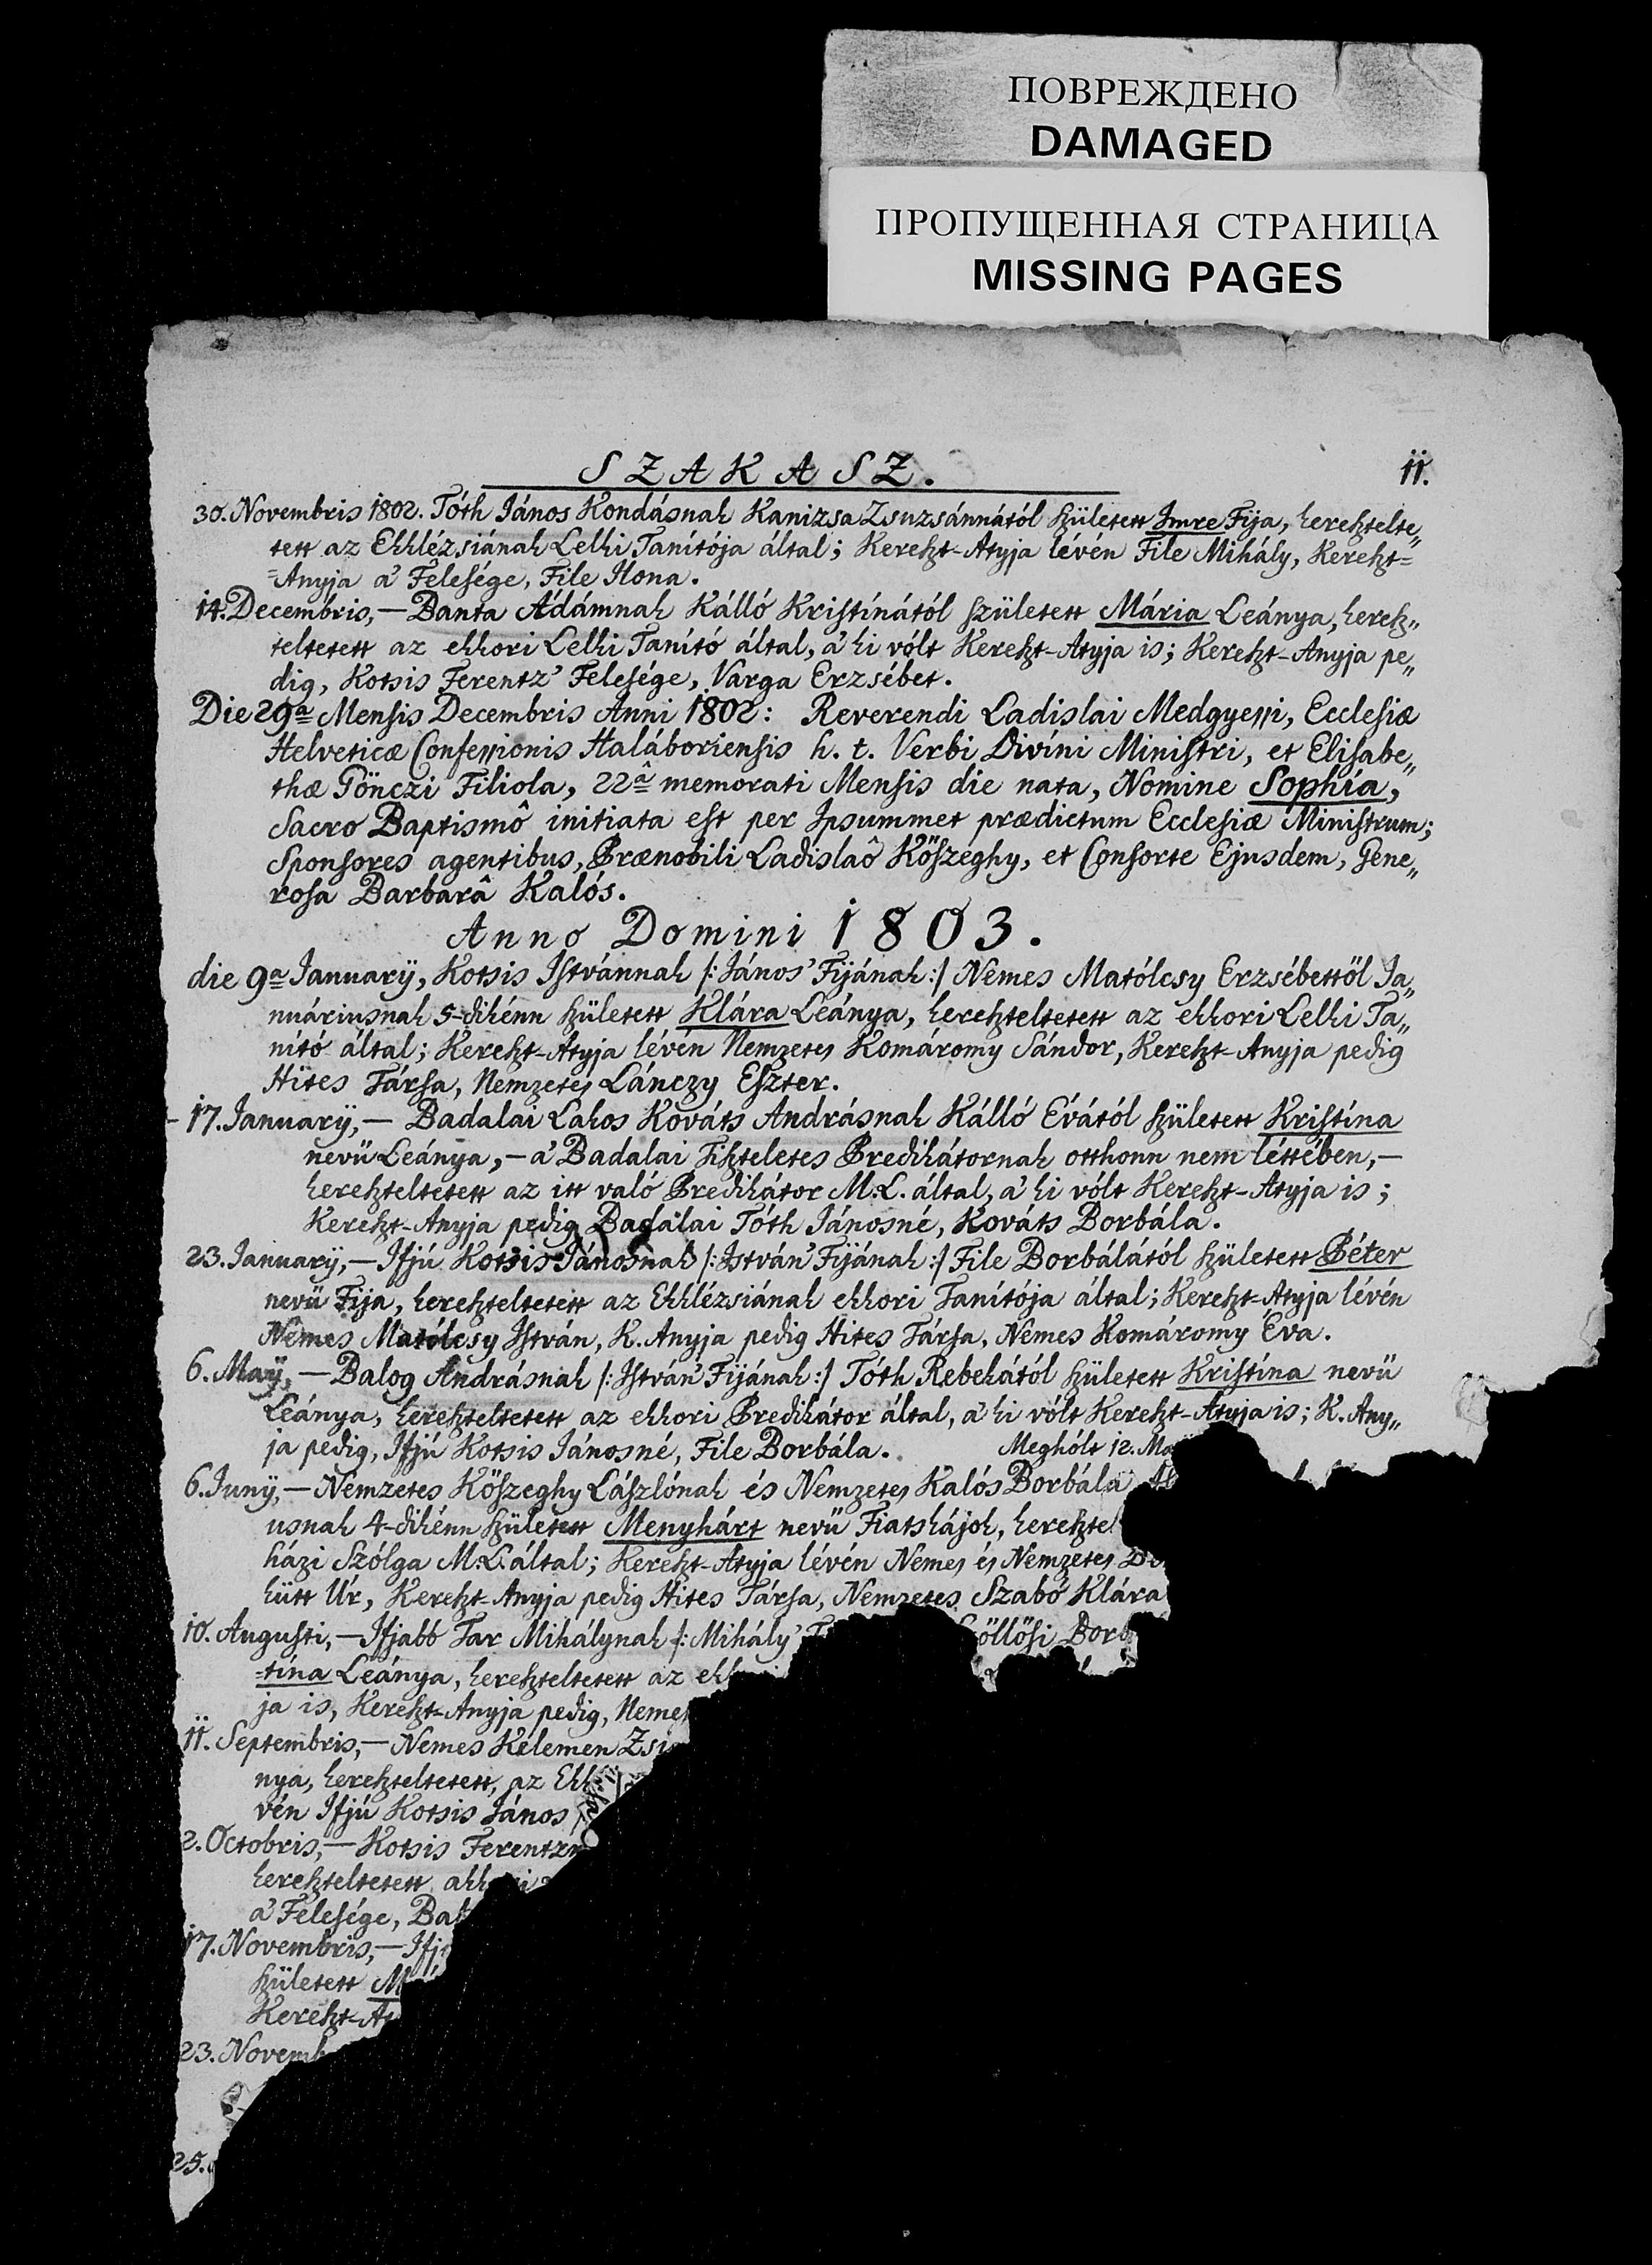 ПОВРЕЖДЕНО
DAMAGED
ПРОПУЩЕННАЯ СТРАНИЦА
MISSING PAGES
SZAKASZ. 11.
30. Novembris 1802. Tóth János Kondásnak Kanizsa Zsuzsánnától született Imre Fija, keresztelte„
tett az Ekklézsiának Lelki Tanítója által; Kereszt-Atyja lévén File Mihály, Kereszt=
=Anyja a' Felesége, File Ilona.
14. Decembris,— Banta Ádámnak Kálló Kristínától született Mária Leánya, keresz„
teltetett az ekkori Lelki Tanító által, a' ki vólt Kereszt-Atyja is; Kereszt-Anyja pe„
dig, Kotsis Ferentz' Felesége, Varga Erzsébet.
Die 29a Mensis Decembris Anni 1802: Reverendi Ladislai Medgyessi, Ecclesiæ
Helveticæ Confessionis Haláboriensis h. t. Verbi Divíni Ministri, et Elisabe„
thæ Gönczi Filiola, 22â memorati Mensis die nata, Nomine Sophia,
Sacro Baptismô initiata est per Ipsummet prædictum Ecclesiæ Ministrum;
Sponsores agentibus, Prænobili Ladislaô Kőszeghy, et Consorte Ejusdem, Gene„
rosa Barbarâ Kalós.
Anno Domini 1803.
die 9a Januarÿ, Kotsis Istvánnak /: János' Fijának :/ Nemes Matólcsy Erzsébettől Ja„
nuáriusnak 5-dikénn született Klára Leánya, kereszteltetett az ekkori Lelki Ta„
nító által; Kereszt-Atyja lévén Nemzetes Komáromy Sándor, Kereszt-Anyja pedig
Hites Társa, Nemzetes Lánczy Eszter.
- 17. Januarÿ,— Badalai Lakos Kováts Andrásnak Kálló Évától született Kristína
nevű Leánya,— a' Badalai Tiszteletes Prédikátornak otthonn nem léttében,—
kereszteltetett az itt való Prédikátor M.L. által, a' ki vólt Kereszt-Atyja is;
Kereszt-Anyja pedig Badalai Tóth Jánosné, Kováts Borbála.
23. Januarÿ,— Ifjú Kotsis Jánosnak /: István' Fijának :/ File Borbálától született Péter
nevű Fija, kereszteltetett az Ekklézsiának ekkori Tanítója által; Kereszt-Atyja lévén
Nemes Matólcsy István, K. Anyja pedig Hites Társa, Nemes Komáromy Éva.
6. Maÿ,— Balog Andrásnak /: István' Fijának :/ Tóth Rebekától született Kristína nevű
Leánya, kereszteltetett az ekkori Prédikátor által, a' ki vólt Kereszt-Atyja is; K. Any„
ja pedig, Ifjú Kotsis Jánosné, File Borbála. Meghólt 12. Maÿ
6. Junÿ,— Nemzetes Kőszeghy Lászlónak és Nemzetes Kalós Borbála
usnak 4-dikénn született Menyhárt nevű Fiatskájok, keresztel
házi Szólga M.L. által; Kereszt-Atyja lévén Nemes és Nemzetes
hütt Úr, Kereszt-Anyja pedig Hites Társa, Nemzetes Szabó Klára
10. Augusti,— Ifjabb Tar Mihálynak /: Mihály' öllősi Borb
=tína Leánya, kereszteltetett az ekk
ja is, Kereszt-Anyja pedig, Nemes
11. Septembris,— Nemes Kelemen Zsi
nya, kereszteltetett, az Ekk
vén Ifjú Kotsis János
2. Octobris,— Kotsis Ferentzn
kereszteltetett
a' Felesége, Bak
17. Novembris,— Ifj
született M
Kereszt-At
23. Novemb
25.